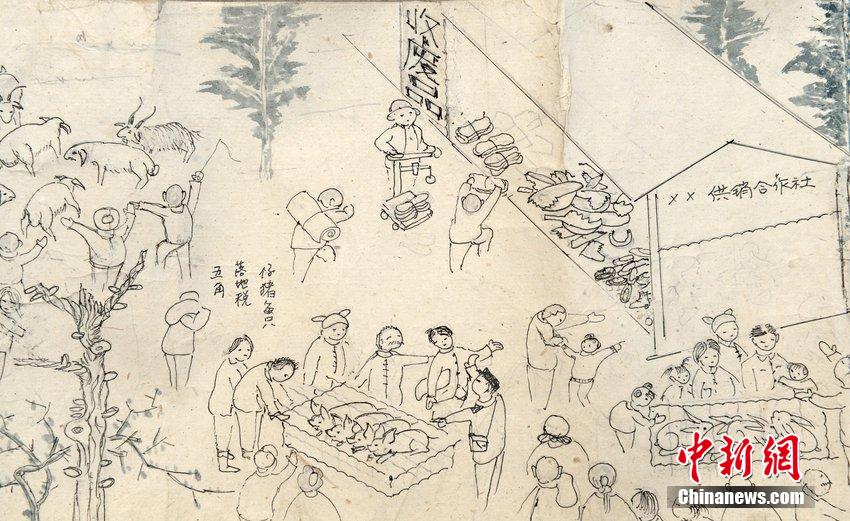 收废品
×× 供销合作社
仔猪每只
落地税
五角
中新網
Chinanews.com